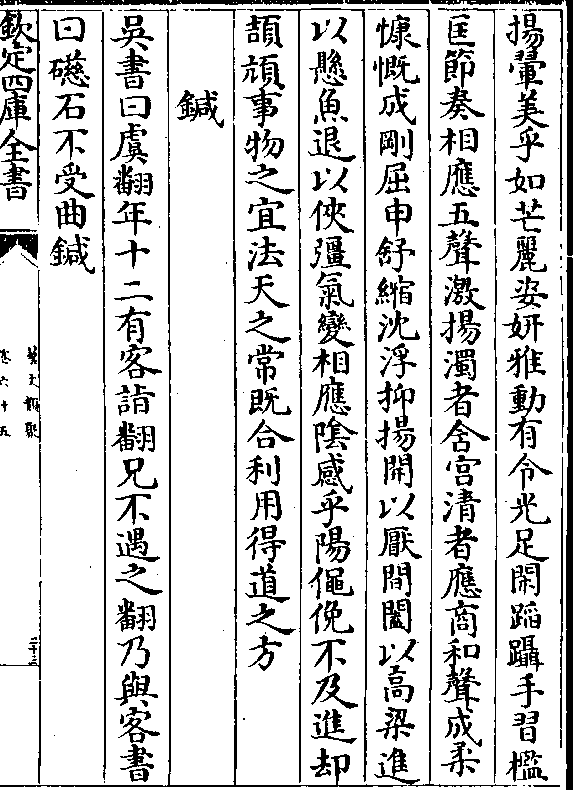 揚翬美乎如芒麗姿妍雅動有令光足閑蹈躡手習檻
匡節奏相應五聲激揚濁者含宫清者應商和聲成柔
慷慨成剛屈申舒縮沈浮抑揚開以厭間闔以高梁進
以懸魚退以俠彊氣變相應隂感乎陽僶俛不及進却
頡頏事物之宜法天之常既合利用得道之方
鍼
吳書曰虞翻年十二有客詣翻兄不遇之翻乃與客書
曰礠石不受曲鍼
欽定四庫全書
藝文類聚
卷六十五
二十三